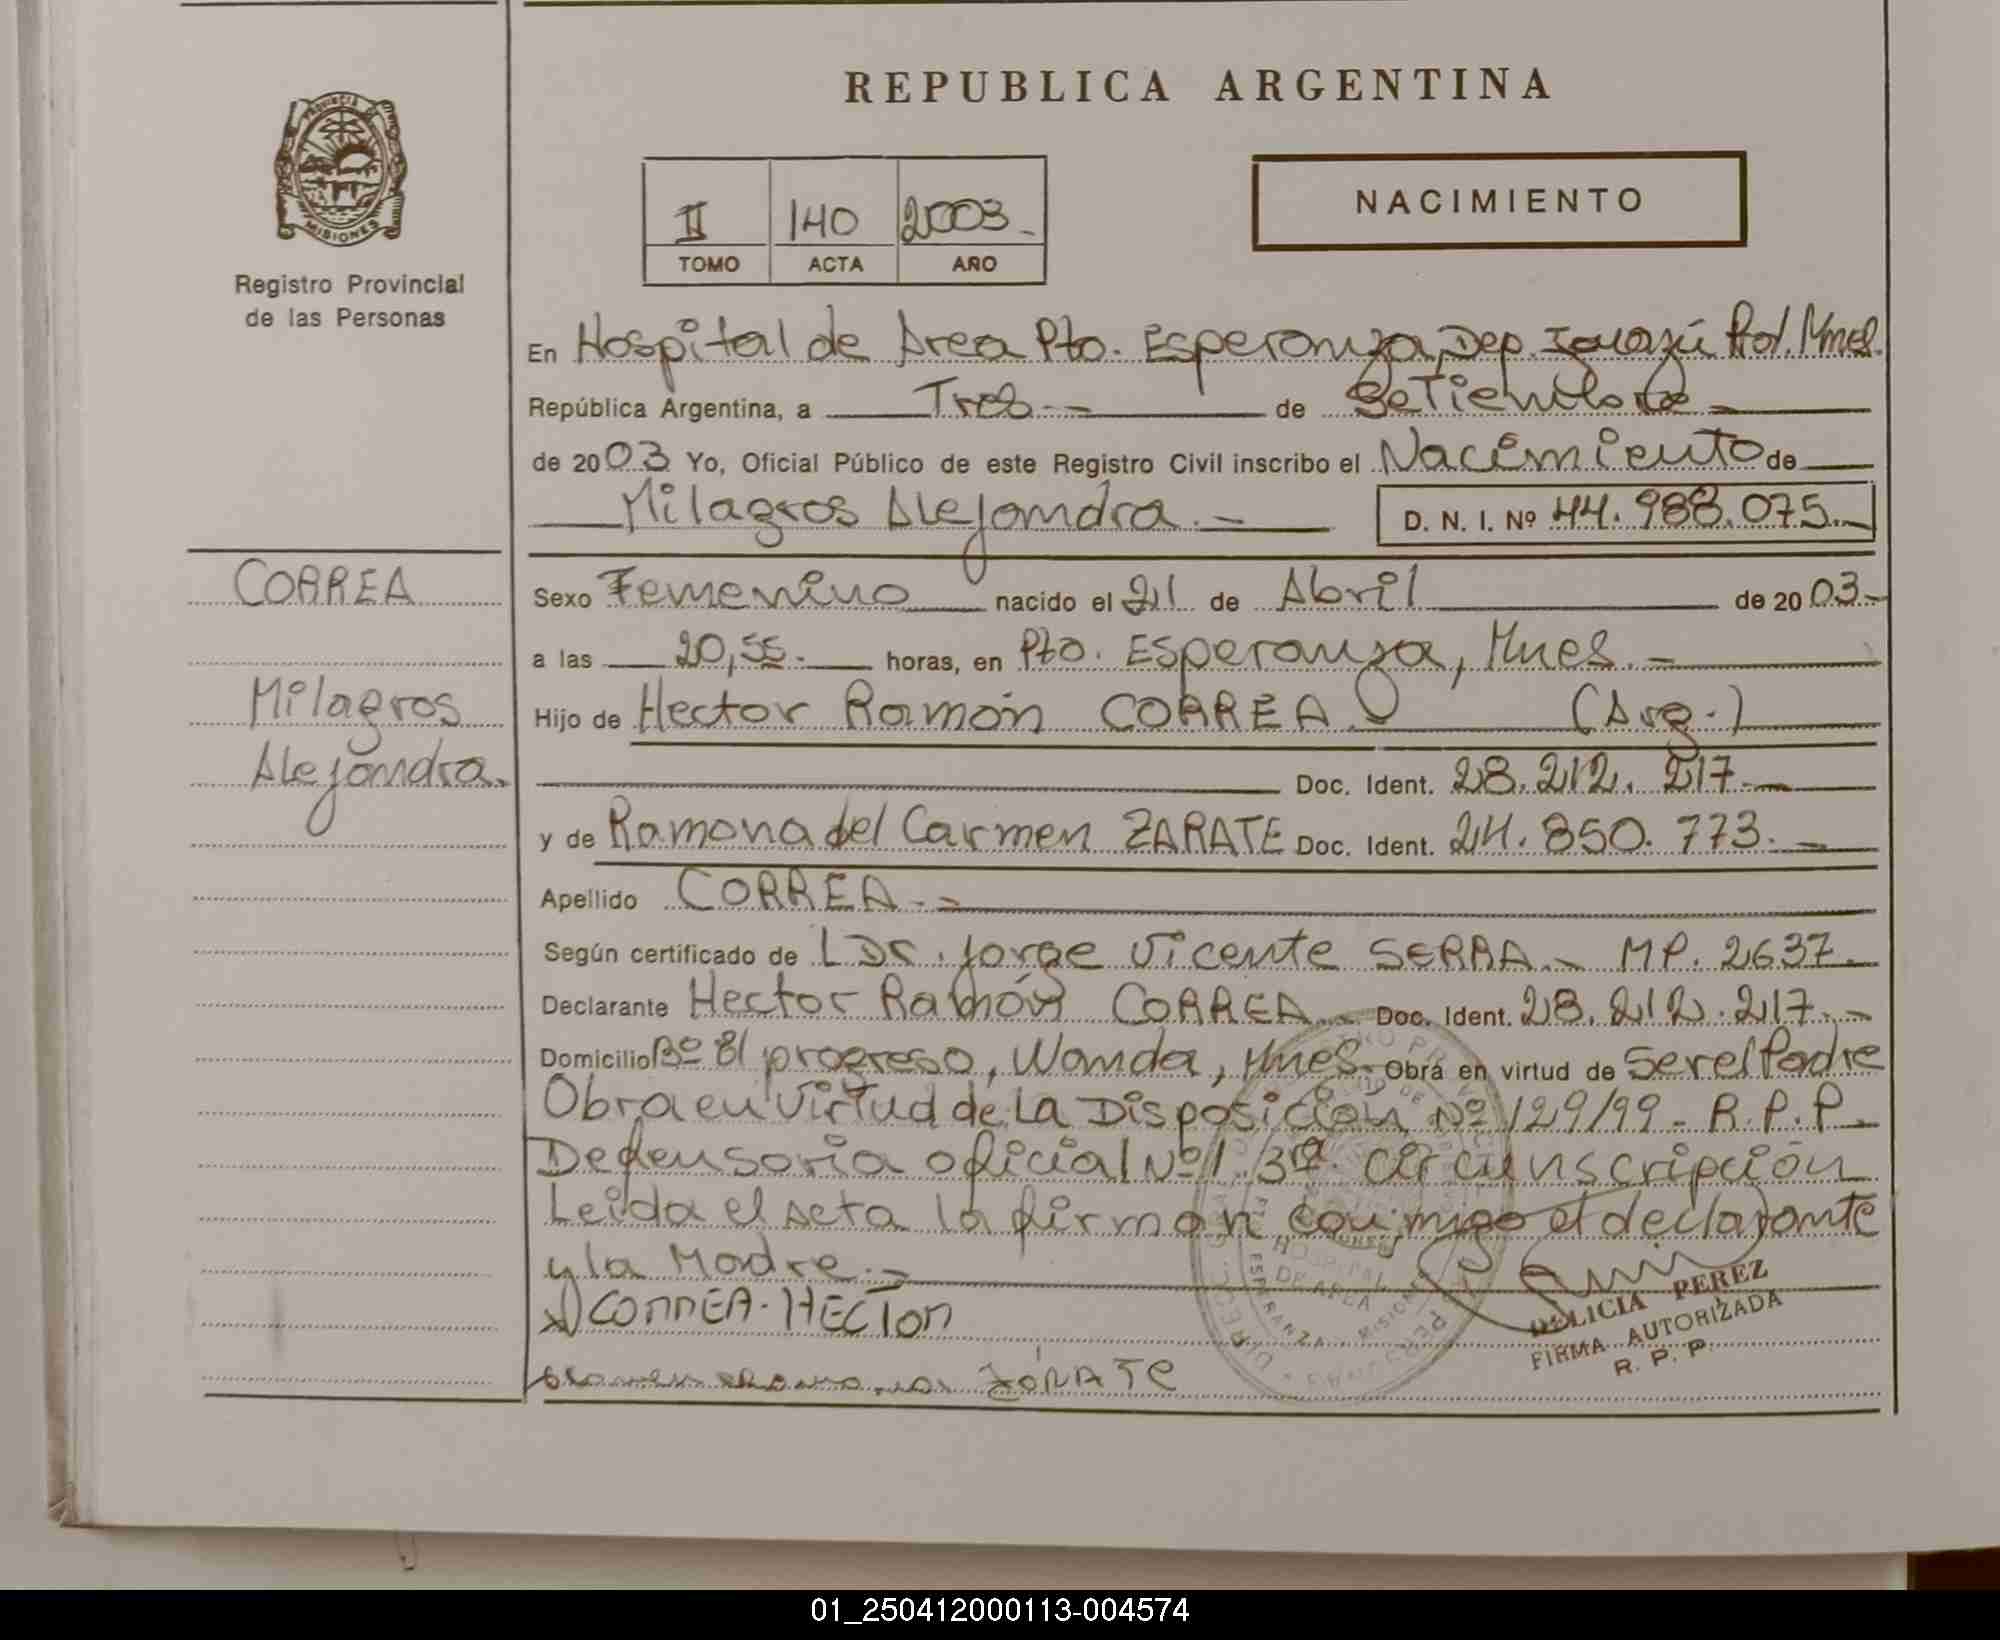 REPUBLICA ARGENTINA
PROVINCIA
MISIONES
Registro Provincial
de las Personas
II 140 2003.-
TOMO ACTA AÑO
NACIMIENTO
En Hospital de Area Pto. Esperanza, Dep. Iguazú
República Argentina, a Tres.- de Setiembre.-
de 2003 Yo, Oficial Público de este Registro Civil inscribo el Nacimiento de
Milagros Alejandra.- D. N. I. Nº 44.988.075.-
CORREA
Milagros
Alejandra.
Sexo Femenino nacido el 21 de Abril de 2003.-
a las 20,55.- horas, en Pto. Esperanza, Mnes.-
Hijo de Hector Ramón CORREA.- (Arg.)
Doc. Ident. 28.212.217.-
y de Ramona del Carmen ZARATE Doc. Ident. 24.850.773.-
Apellido CORREA.-
Según certificado de Dr. Jorge Vicente SERRA.- MP. 2637.-
Declarante Hector Ramón CORREA.- Doc. Ident. 28.212.217.-
Domicilio Bº El progreso, Wanda, Mnes.- Obra en virtud de Ser el Padre
Obra en Virtud de La Disposición Nº 129/99 - R.P.P.-
Defensoria oficial Nº 1 3ra. circunscripción
Leida el Acta la firman conmigo el declarante
y la Madre.-
CORREA - HECTOR
ZARATE
HOSPITAL
DE AREA
ESPERANZA
MISIONES
DELICIA PEREZ
FIRMA AUTORIZADA
R. P. P.
01_250412000113-004574